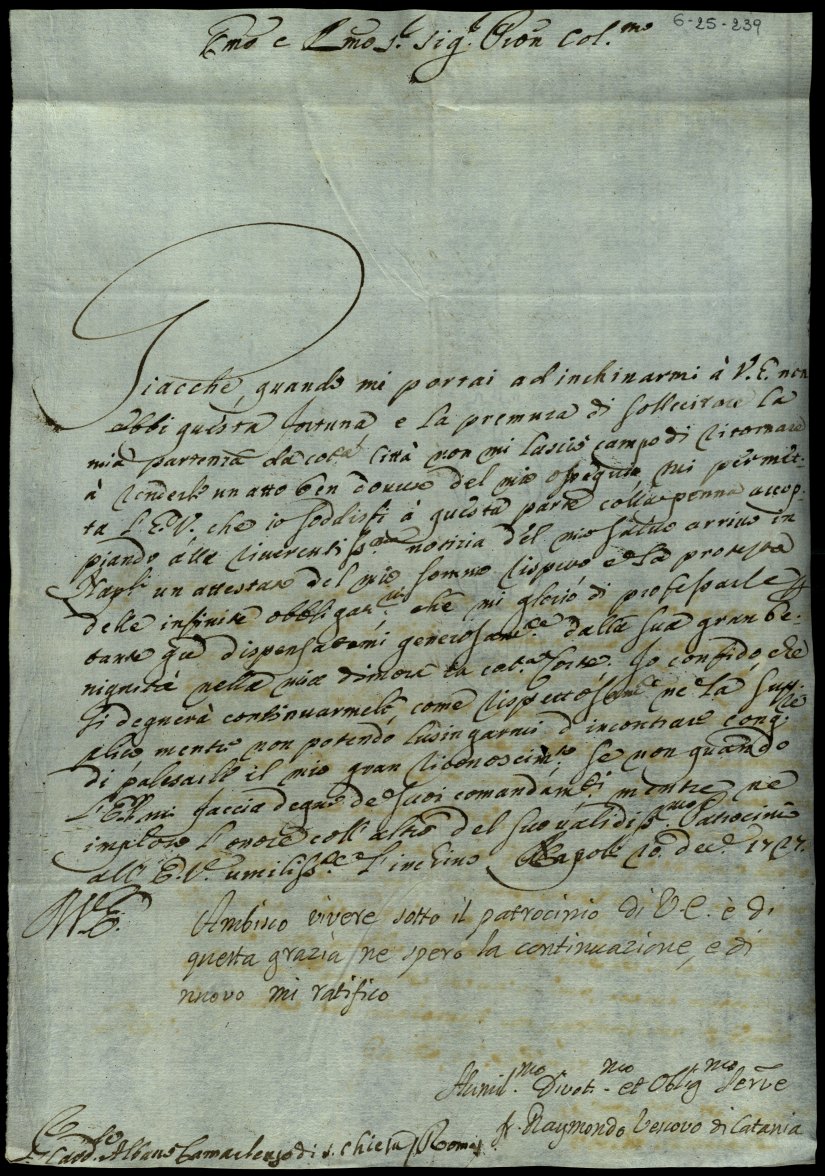 6-25-239
Emo e Rmo S.r Sig.r Pron Col.mo
Giacche, quando mi portai ad inchinarmi à V.E. non
ebbi questa fortuna, e la premura di sollecitare la
mia partenza da cot.a Città non mi lasciò campo di ritornare
à renderle un atto ben dovuto del mio ossequio, mi permet-
ta l'E.V. che io soddisfi à questa parte colla penna accop-
piando alla riverentiss.ma notizia del mio salvo arrivo in
Napli un attestato del mio sommo rispetto e la protesta
delle infinite obbligaz.ni che mi glorio di professarle
grazie dispensatemi generosam.te dalla sua gran be-
nignità nella mia dimora in cot.a Corte. Io confido, che
si degnerà continuarmele, come rispettosam.te ne la supp.co
mentre non potendo lusingarmi d'incontrare cong.re
di palesarle il mio gran riconoscim.to se non quando
l'E.V. mi faccia degno de suoi comandam.ti mentre ne
imploro l'onore coll'altro del suo validiss.mo Patrocinio
all'E.V. umiliss.te l'inchino Napoli 10 dec.e 1727.
V.E. Ambisco vivere sotto il patrocinio di V.E. è di
questa grazia ne spero la continuazione, e di
nuovo mi ratifico
Humil.mo Divot.mo et Oblig.mo Serve
fr. Raymondo Vescovo di Catania
Card.le Albano Camarlengo di S. Chiesa (Roma)